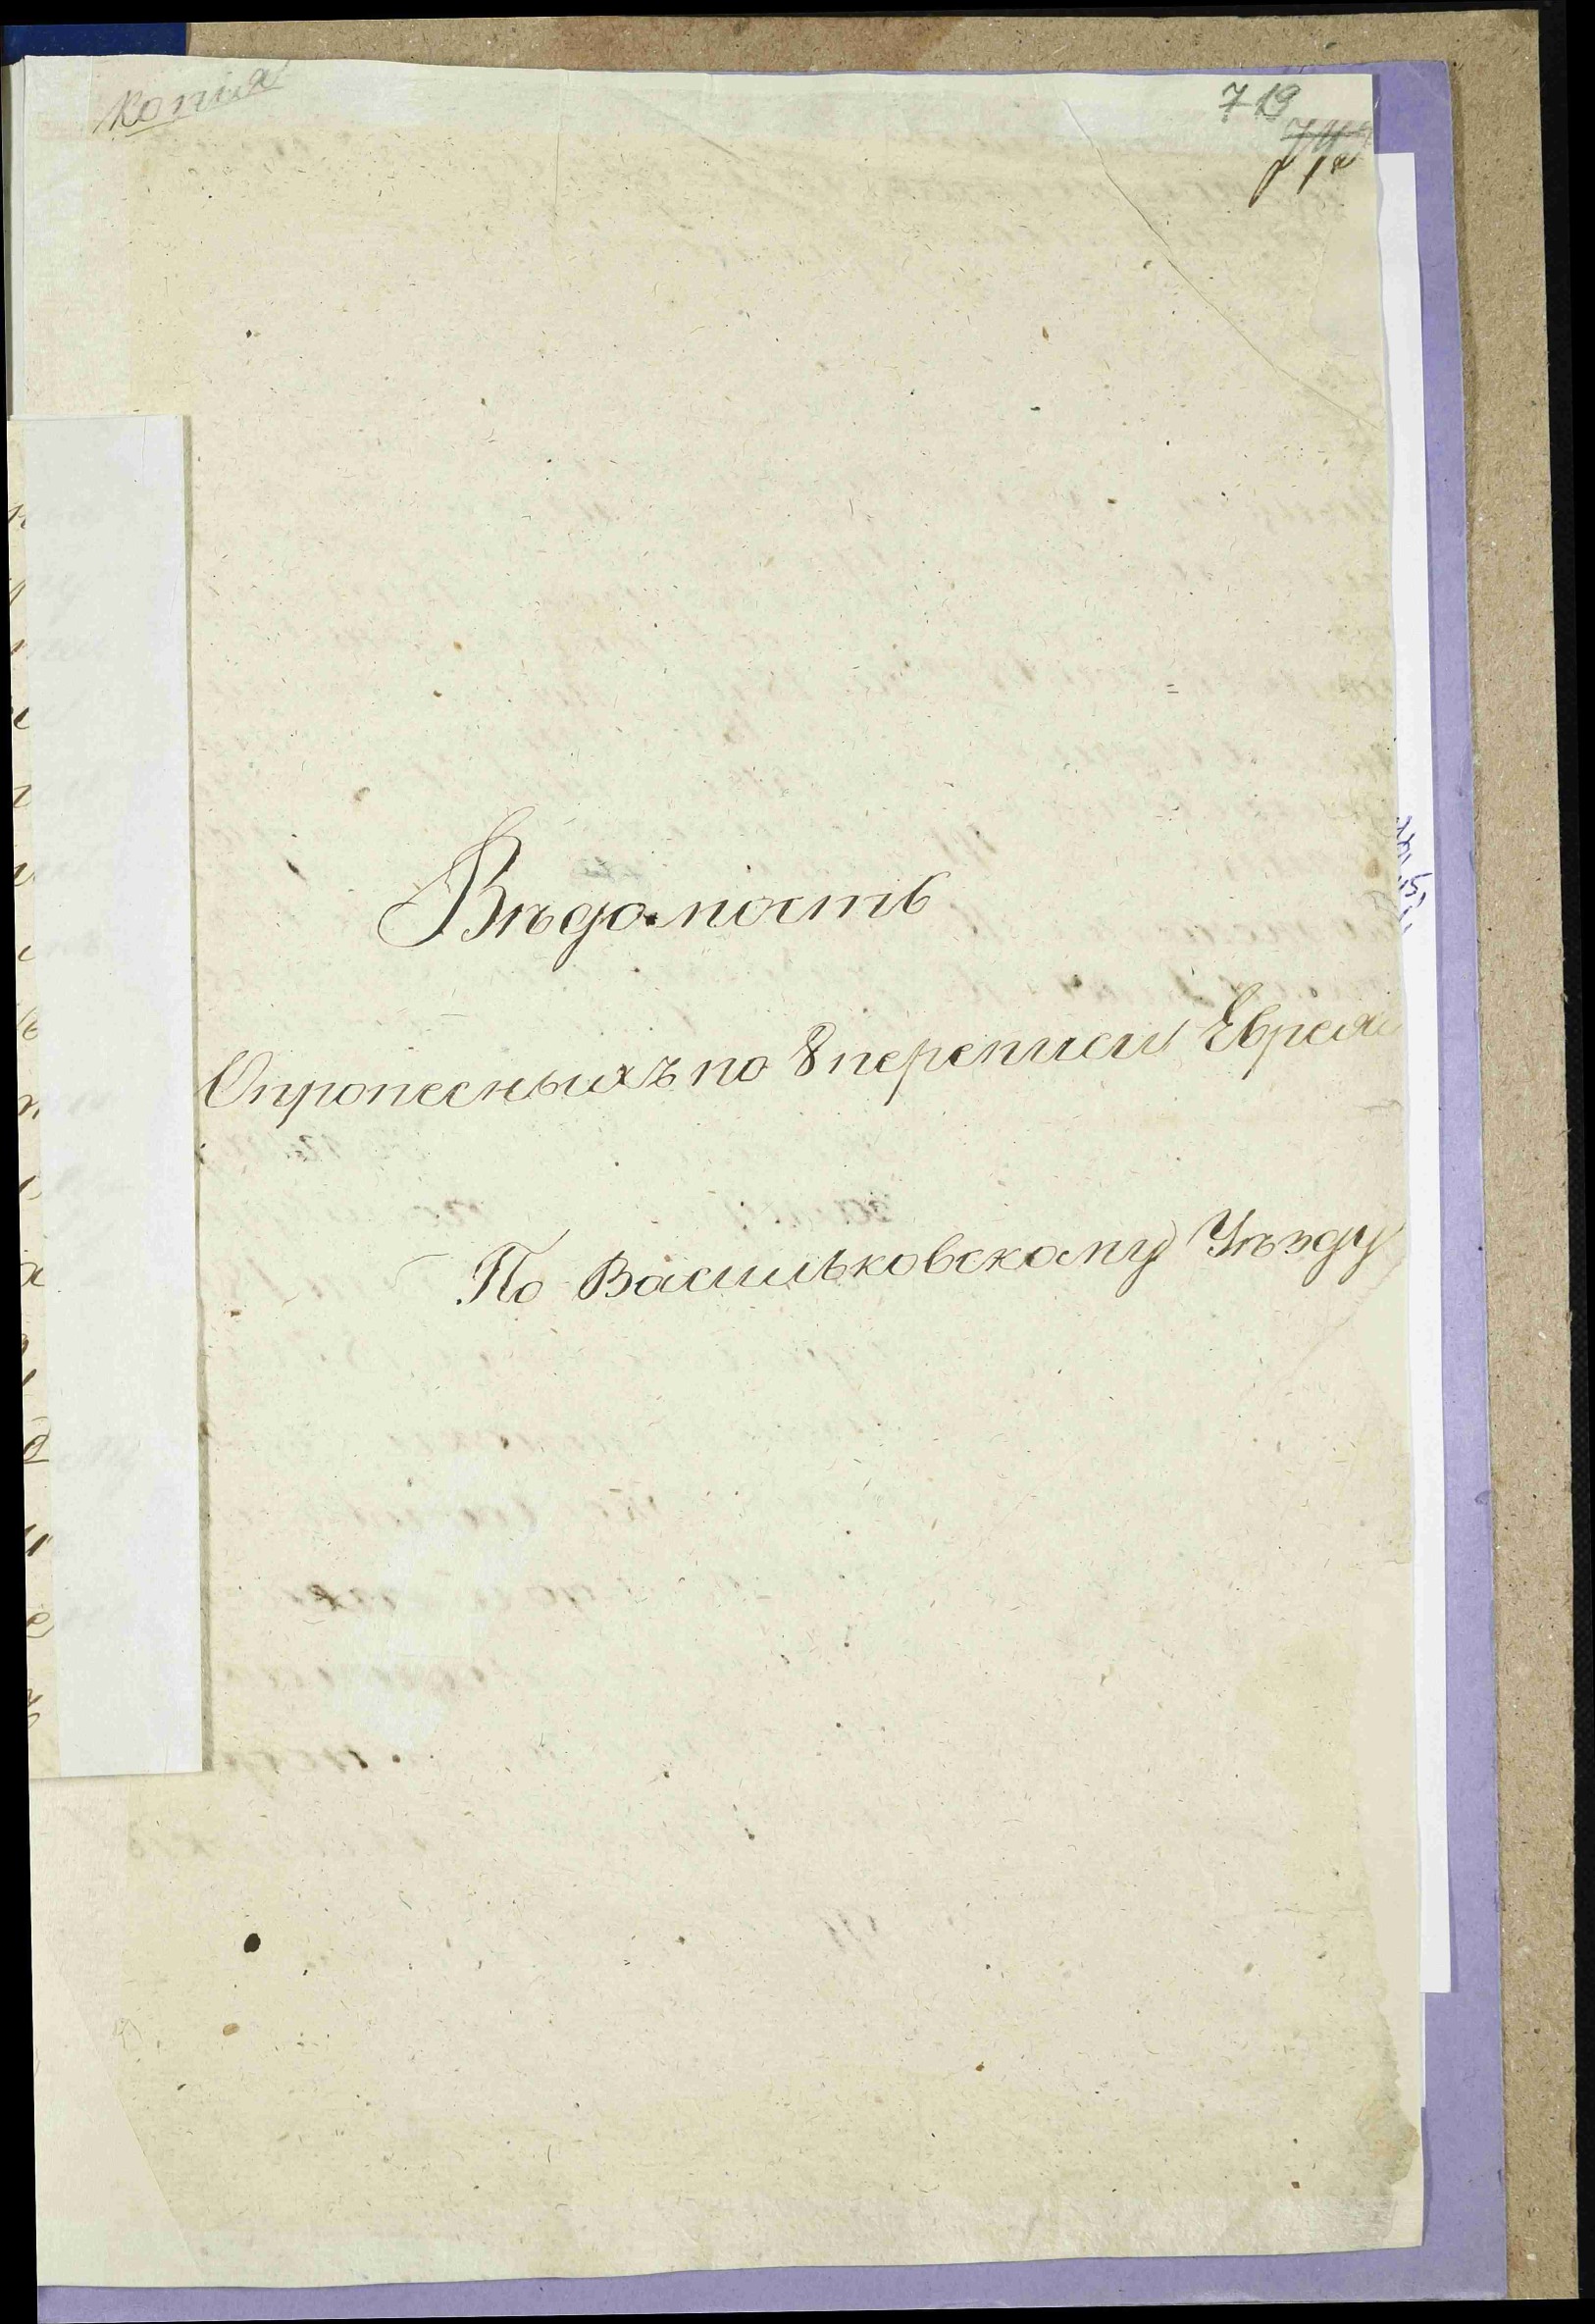 копия
719
Вѣдомость
Опропесныихъ по 8 переписи Евреяхъ
По Васильковскому Уѣзду